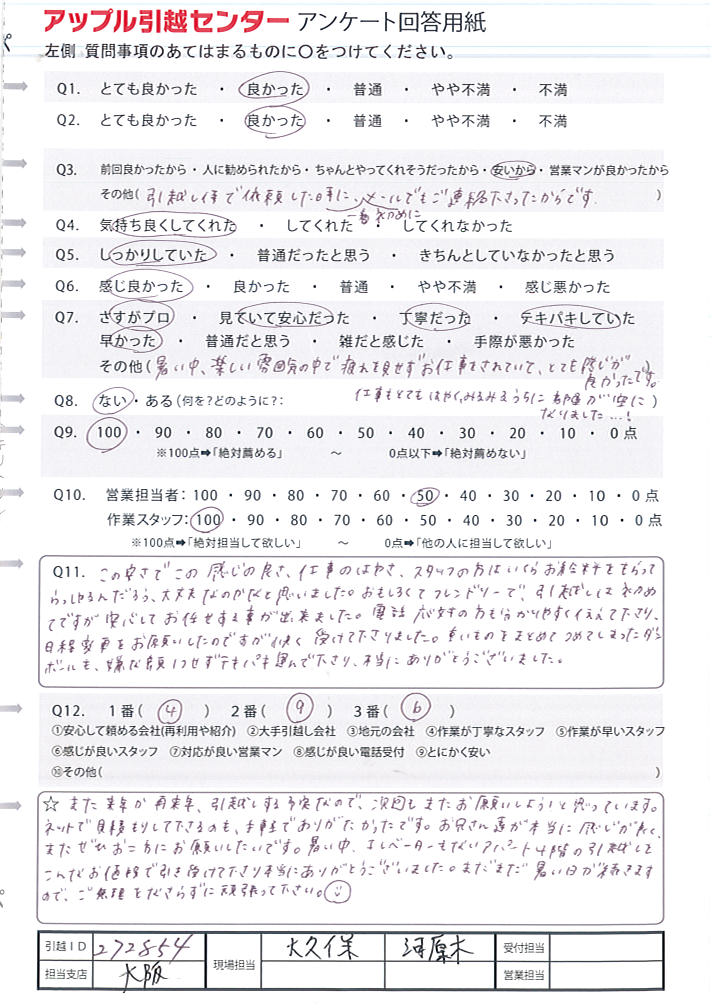 アップル引越センター アンケート回答用紙
左側 質問事項のあてはまるものに〇をつけてください。
Q1. とても良かった ・ 良かった ・ 普通 ・ やや不満 ・ 不満
Q2. とても良かった ・ 良かった ・ 普通 ・ やや不満 ・ 不満
Q3. 前回良かったから・人に勧められたから・ちゃんとやってくれそうだったから・安いから・営業マンが良かったから
その他( 引越し侍で依頼した時に、メールでもご連絡下さったからです. )
一番初めに
Q4. 気持ち良くしてくれた ・ してくれた ・ してくれなかった
Q5. しっかりしていた ・ 普通だったと思う ・ きちんとしていなかったと思う
Q6. 感じ良かった ・ 良かった ・ 普通 ・ やや不満 ・ 感じ悪かった
Q7. さすがプロ ・ 見ていて安心だった ・ 丁寧だった ・ テキパキしていた
早かった ・ 普通だと思う ・ 雑だと感じた ・ 手際が悪かった
その他( 暑い中、楽しい雰囲気の中で疲れを見せずお仕事をされていて、とても感じが )
良かったです。
Q8. ない・ある(何を?どのように?: 仕事もとてもはやく、みるみるうちに部屋が空に )
なりました…!
Q9. 100 ・ 90 ・ 80 ・ 70 ・ 60 ・ 50 ・ 40 ・ 30 ・ 20 ・ 10 ・ 0 点
※100点➡「絶対薦める」 〜 0点以下➡「絶対薦めない」
Q10. 営業担当者: 100 ・ 90 ・ 80 ・ 70 ・ 60 ・ 50 ・ 40 ・ 30 ・ 20 ・ 10 ・ 0 点
作業スタッフ: 100 ・ 90 ・ 80 ・ 70 ・ 60 ・ 50 ・ 40 ・ 30 ・ 20 ・ 10 ・ 0 点
※100点➡「絶対担当して欲しい」 〜 0点➡「他の人に担当して欲しい」
Q11. この安さでこの感じの良さ、仕事のはやさ、スタッフの方はいくらお給料をもらって
らっしゃるんだろう、大丈夫なのかなと思いました。おもしろくてフレンドリーで、引越しは初め
てですが安心してお任せする事が出来ました。電話応対の方も分かりやすく伝えて下さり、
日程変更をお願いしたのですが快く受けて下さりました。重いものをまとめてつめてしまったダン
ボールも、嫌な顔1つせずテキパキ運んで下さり、本当にありがとうございました。
Q12. 1番( 4 ) 2番( 9 ) 3番( 6 )
①安心して頼める会社(再利用や紹介) ②大手引越し会社 ③地元の会社 ④作業が丁寧なスタッフ ⑤作業が早いスタッフ
⑥感じが良いスタッフ ⑦対応が良い営業マン ⑧感じが良い電話受付 ⑨とにかく安い
⑩その他( )
☆ また来年か再来年、引越しする予定なので、次回もまたお願いしようと思っています。
ネットで見積もりして下さるのも、手軽でありがたかったです。お兄さん達が本当に感じが良く、
またぜひお二方にお願いしたいです。暑い中、エレベーターもないアパート4階の引越しを
こんなお値段で引き受けて下さり本当にありがとうございました。まだまだ暑い日が続きます
ので、ご無理をなさらずに頑張って下さい。
引越ID 272854 現場担当 大久保 河原木 受付担当
担当支店 大阪 営業担当